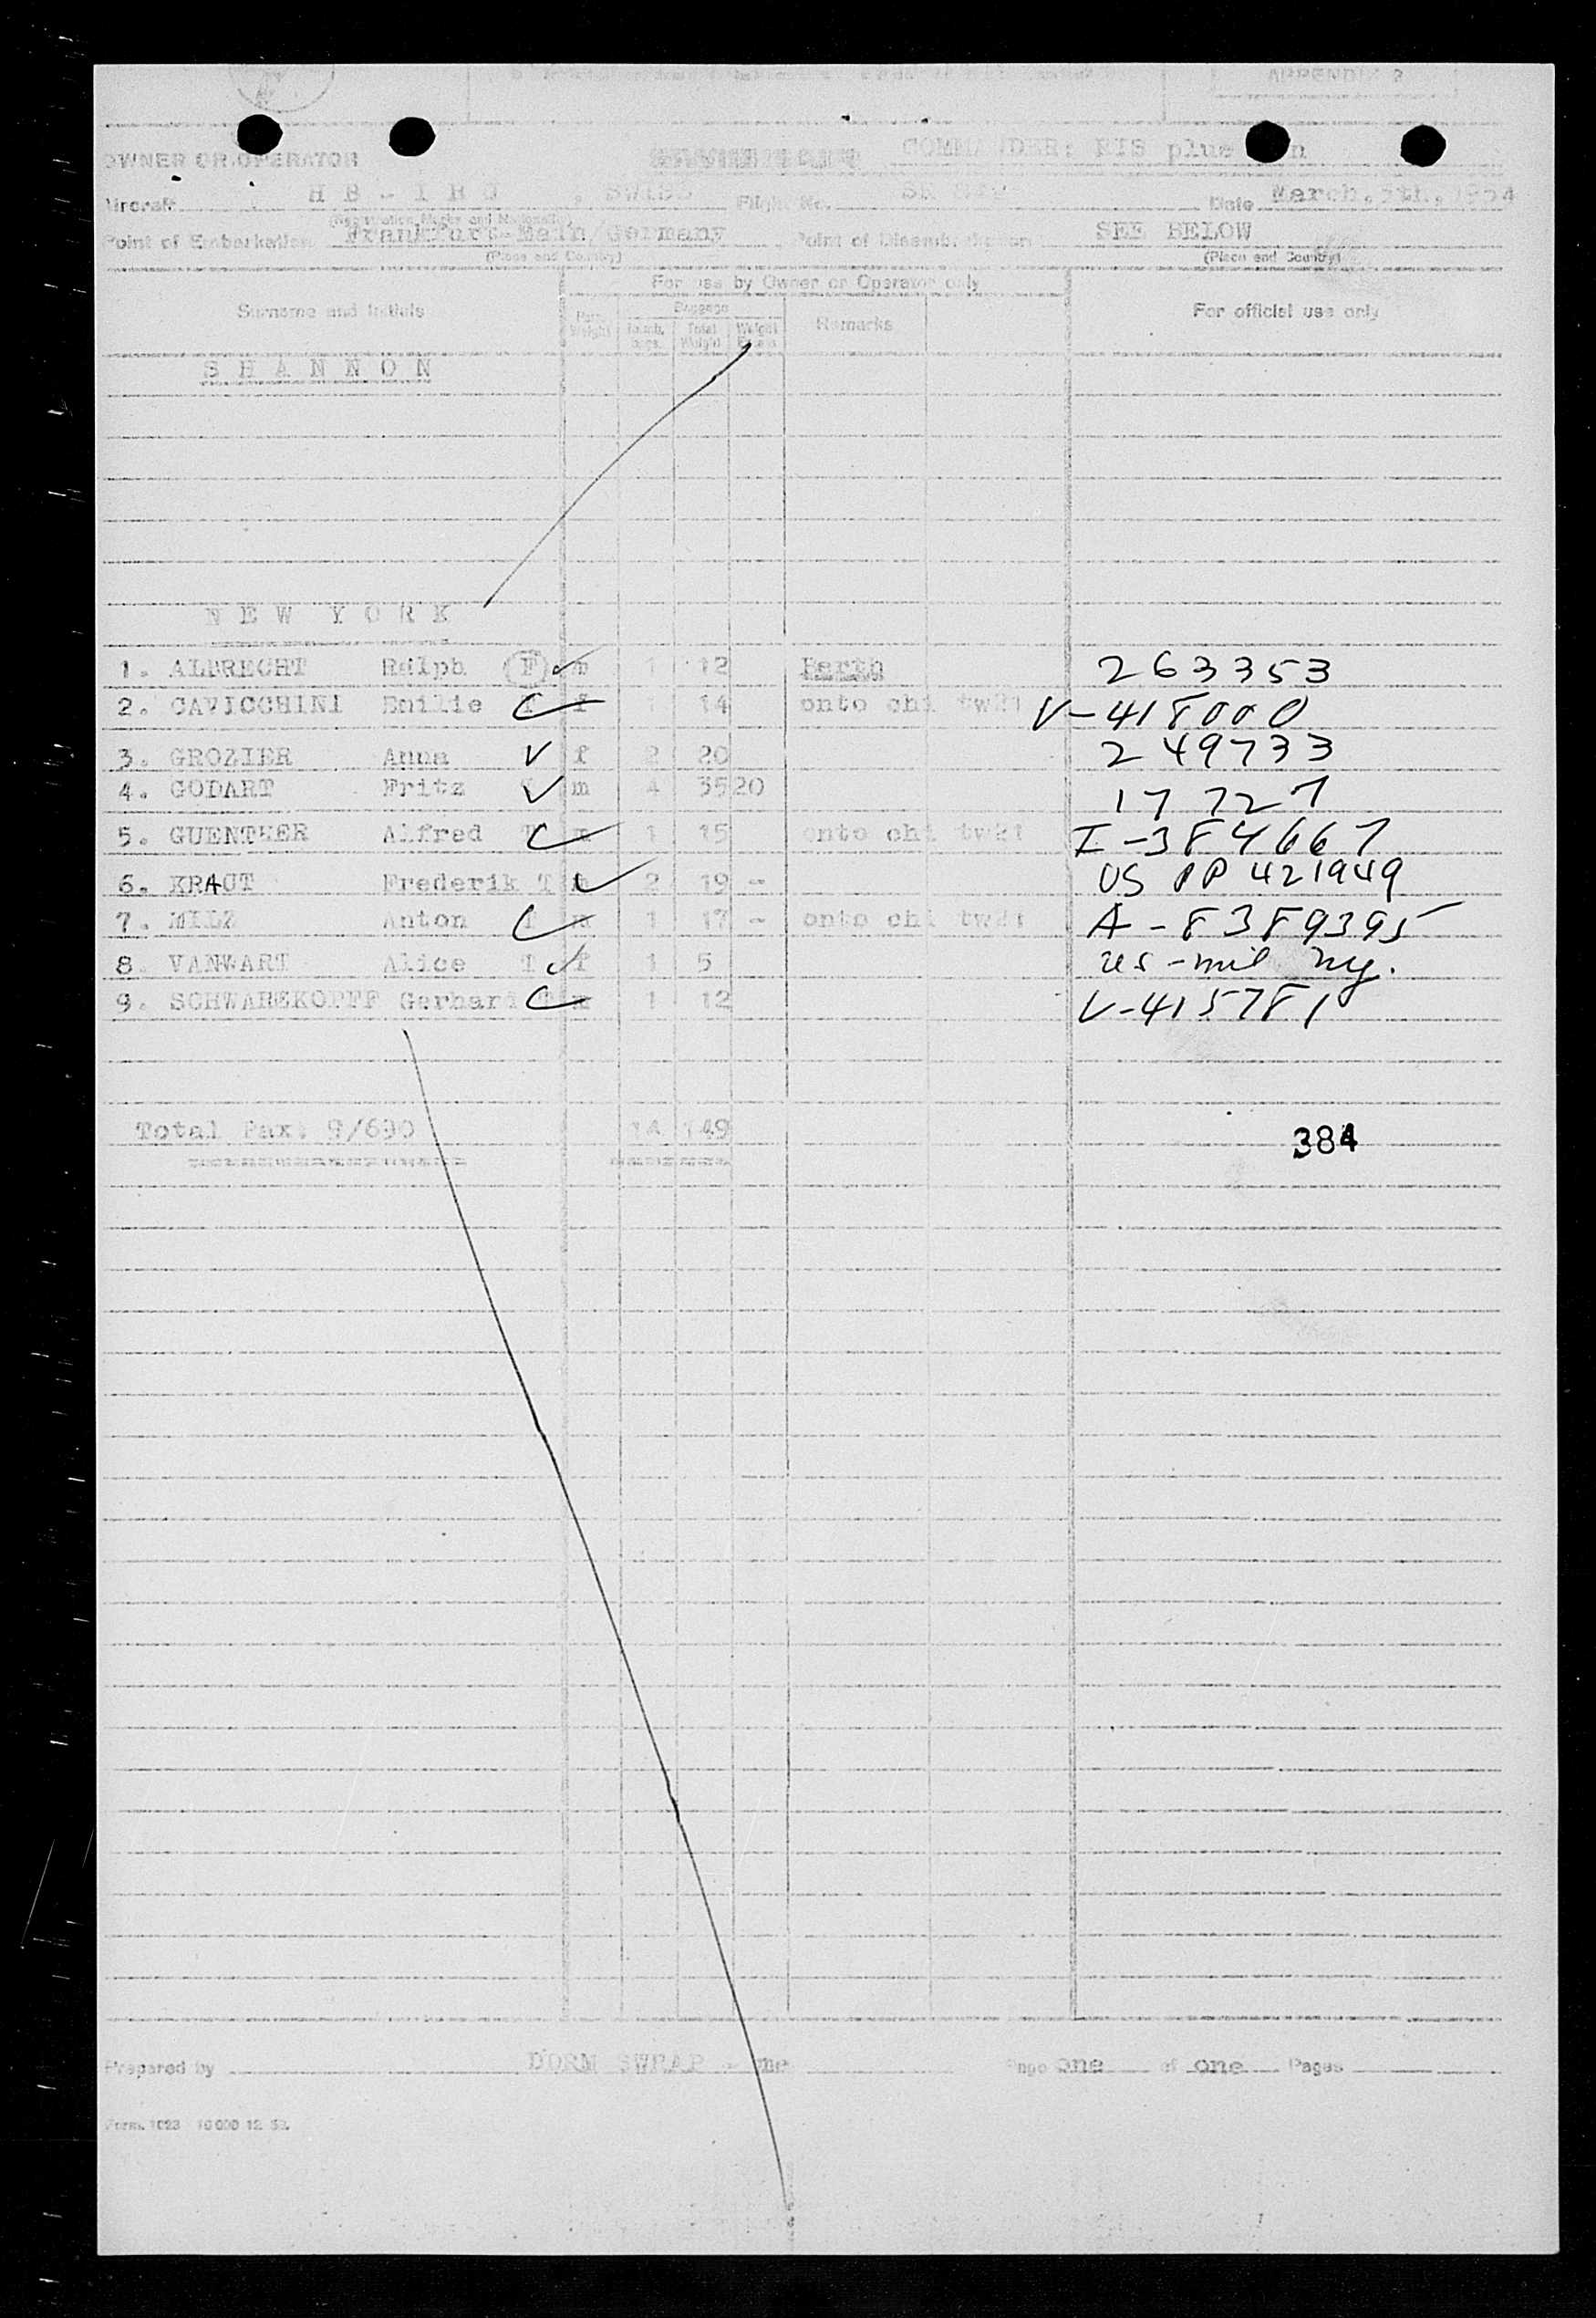 APPENDIX 2
OWNER OR OPERATOR COMMANDER: RIS plus
Aircraft HB - IRO SWISS Flight No. SR Date March, 5th, 1954
(Registration Marks and Nationality)
Point of Embarkation Frankfurt-Main/Germany Point of Disembarkation SEE BELOW
(Place and Country) (Place and Country)
For use by Owner or Operator only
Surname and Initials Baggage Remarks For official use only
Total Weight Weight
SHANNON
NEW YORK
1. ALBRECHT Ralph (F) m 1 12 Berth 263353
2. CAVICCHINI Emilie T f 1 14 onto chi tw21 V-418000
3. GROZIER Anna f 2 20 249733
4. GODART Fritz m 4 55 20 17727
5. GUENTHER Alfred T m 1 15 onto chi tw21 I-384667
6. KRAUT Frederik T m 2 19 - US PP 421949
7. MILZ Anton T m 1 17 - onto chi tw21 A-8389395
8. VANWART Alice T f 1 5 us-mil ny.
9. SCHWABEKOPFF Gerhard m 1 12 V-415781
Total Pax: 9/690 14 149
384
Prepared by DORM SWRAP - me Page one of one Pages
Form. 1023 10 000 12. 53.